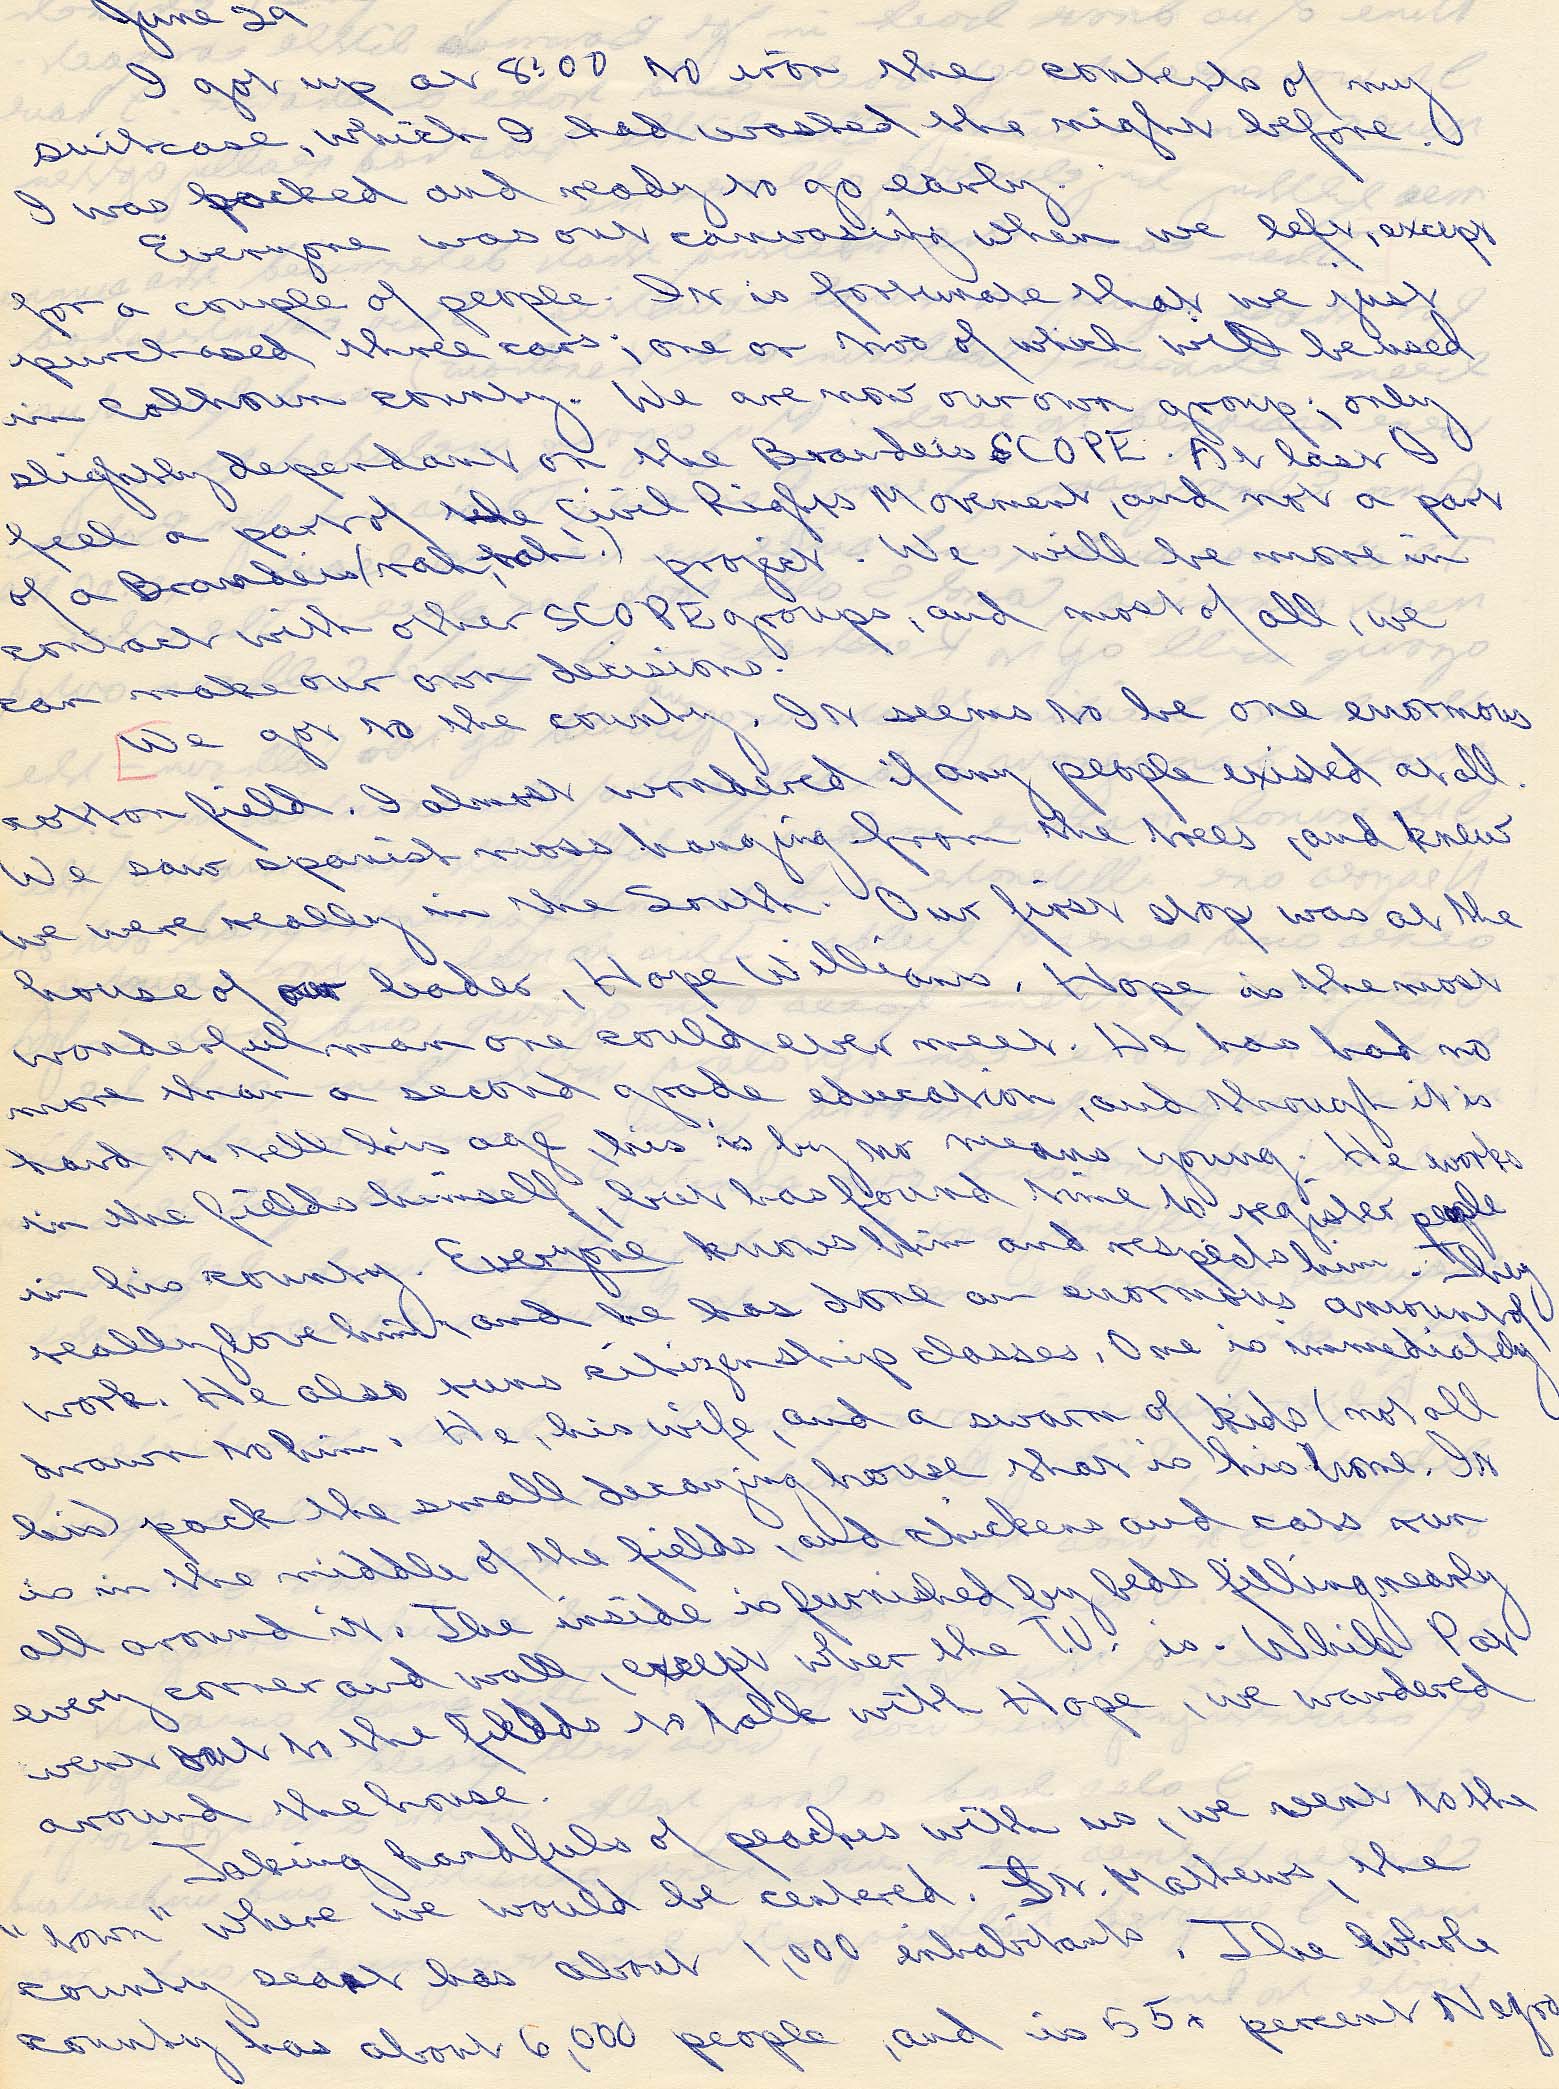 June 29
I got up at 8:00 to iron the contents of my
suitcase, which I had washed the night before.
I was packed and ready to go early.
Everyone was out canvasing when we left, except
for a couple of people. It is fortunate that we just
purchased three cars; one or two of which will be used
in Calhoun county. We are now our own group; only
slightly dependant on the Brandeis SCOPE. At last I
feel a part of the Civil Rights Movement, and not a part
of a Brandeis (rah, rah!) project. We will be more in
contact with other SCOPE groups, and most of all, we
can make our own decisions.
We got to the county. It seems to be one enormous
cotton field. I almost wondered if any people existed at all.
We saw spanish moss hanging from the trees, and knew
we were really in the South. Our first stop was at the
house of our leader, Hope Williams. Hope is the most
wonderful man one could ever meet. He has had no
more than a second grade education, and though it is
hard to tell his age, his is by no means young. He works
in the fields himself, but has found time to register people
in his county. Everyone knows him and respects him. They
really love him, and he has done an enormous amount of
work. He also runs citizenship classes. One is immediatly
drawn to him. He, his wife, and a swarm of kids (not all
his) pack the small decaying house that is his home. It
is in the middle of the fields, and chickens and cats run
all around it. The inside is furnished by beds filling nearly
every corner and wall, except wher the T.V. is. While Pat
went out to the fields to talk with Hope, we wandered
around the house.
Taking handfuls of peaches with us, we went to the
"town" where we would be centered. St. Mathews, the
county seat has about 1,000 inhabitants. The whole
county has about 6,000 people, and is 55+ percent Negro